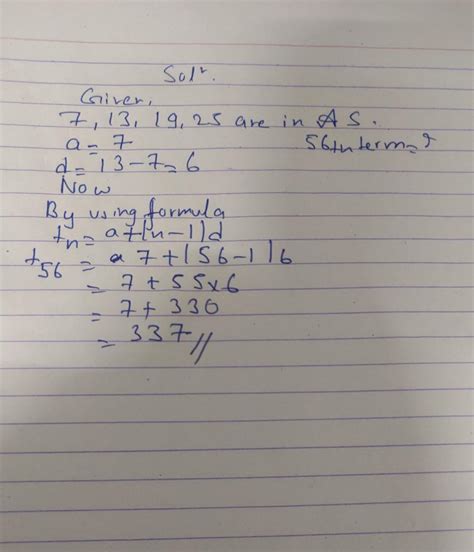 Solⁿ.
Given,
7, 13, 19, 25 are in AS.
a = 7
56th term = ?
d = 13 - 7 = 6
Now
By using formula
tn = a + (n-1)d
t56 = a 7 + (56-1)6
= 7 + 55×6
= 7 + 330
= 337//